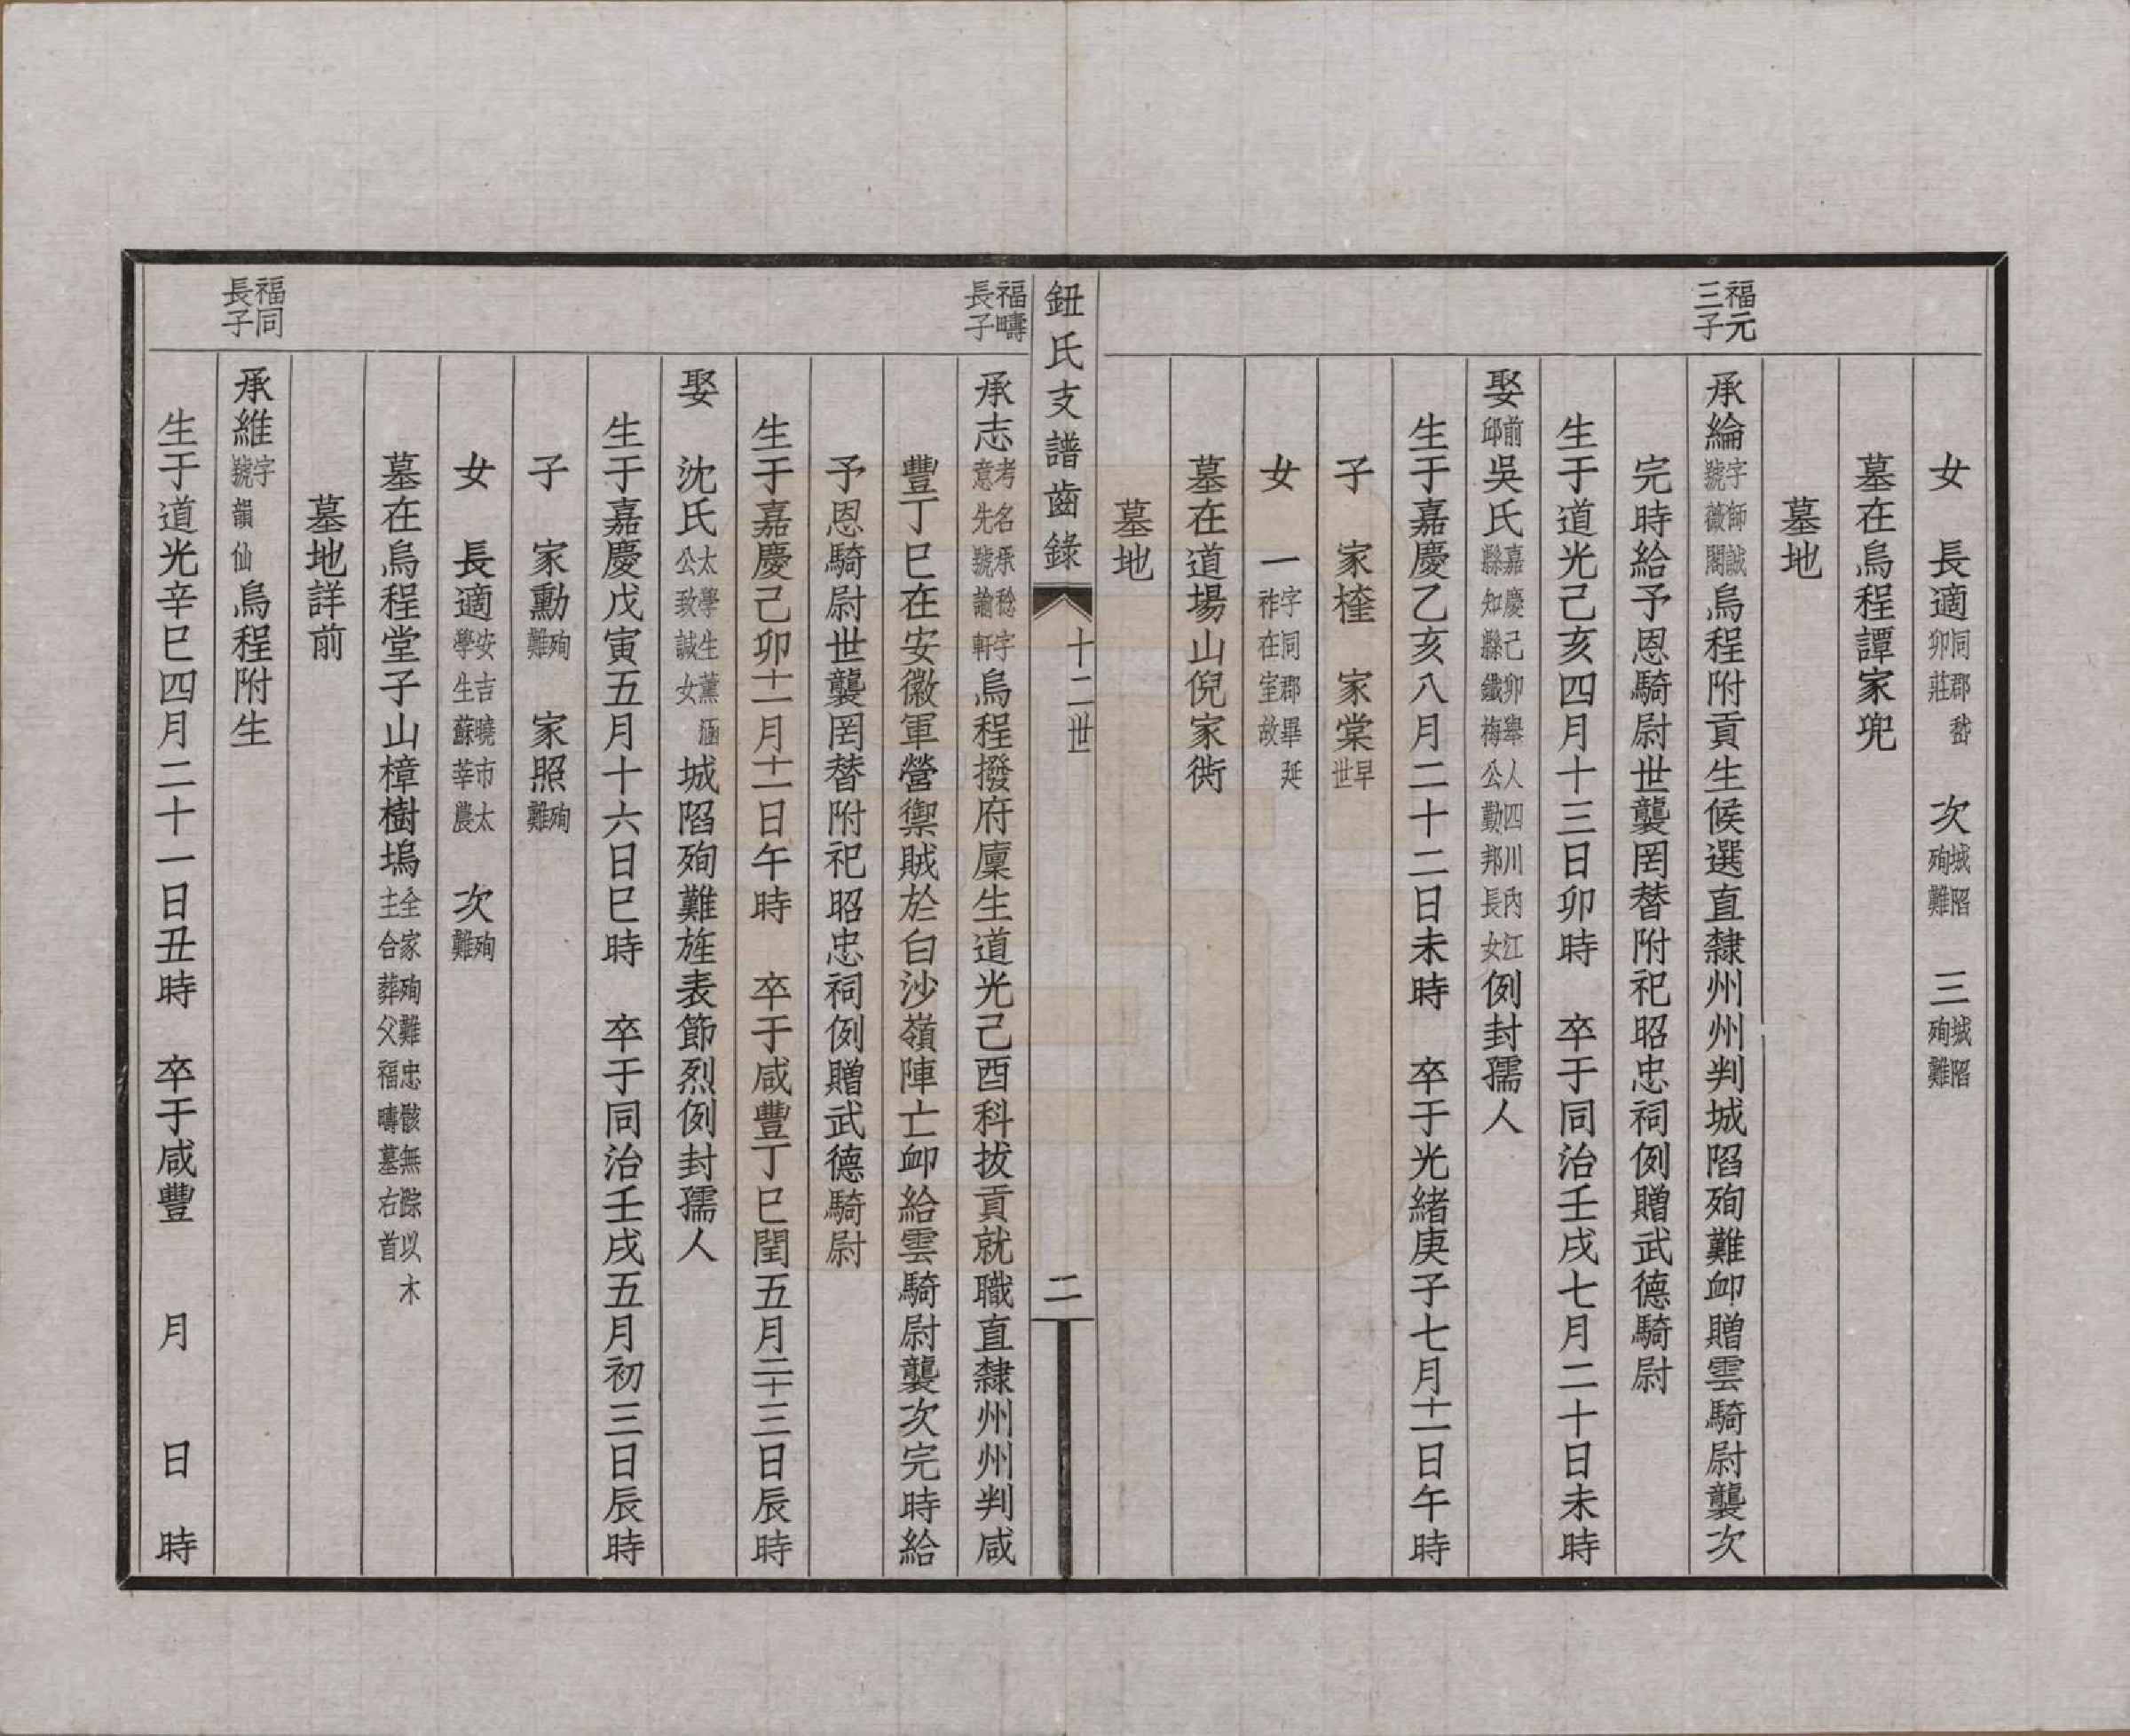 女　長適同郡嵇卯莊　次城陷殉難　三城陷殉難
墓在烏程譚家兜
墓地
福元三子
承綸字師誠號薇閣烏程附貢生候選直隸州州判城陷殉難卹贈雲騎尉襲次
完時給予恩騎尉世襲罔替附祀昭忠祠例贈武德騎尉
生于道光己亥四月十三日卯時　卒于同治壬戌七月二十日未時
娶前邱吳氏嘉慶己卯舉人四川內江縣知縣鐵梅公勤邦長女例封孺人
生于嘉慶乙亥八月二十二日未時　卒于光緒庚子七月十一日午時
子　家㮣　家棠早世
女　一字同郡畢延祚在室故
墓在道場山倪家衖
墓地
鈕氏支譜齒錄　十二世　二
福疇長子
承志考名承稔字意先號諭軒烏程撥府廩生道光己酉科拔貢就職直隸州州判咸
豐丁巳在安徽軍營禦賊於白沙嶺陣亡卹給雲騎尉襲次完時給
予恩騎尉世襲罔替附祀昭忠祠例贈武德騎尉
生于嘉慶己卯十一月十一日午時　卒于咸豐丁巳閏五月二十三日辰時
娶　沈氏太學生薰涵公致誠女城陷殉難旌表節烈例封孺人
生于嘉慶戊寅五月十六日巳時　卒于同治壬戌五月初三日辰時
子　家勳殉難　家照殉難
女　長適安吉曉市太學生蘇莘農　次殉難
墓在烏程堂子山樟樹塢全家殉難忠骸無踪以木主合葬父福疇墓右首
墓地詳前
福同長子
承維字號韻仙烏程附生
生于道光辛巳四月二十一日丑時　卒于咸豐　月　日　時